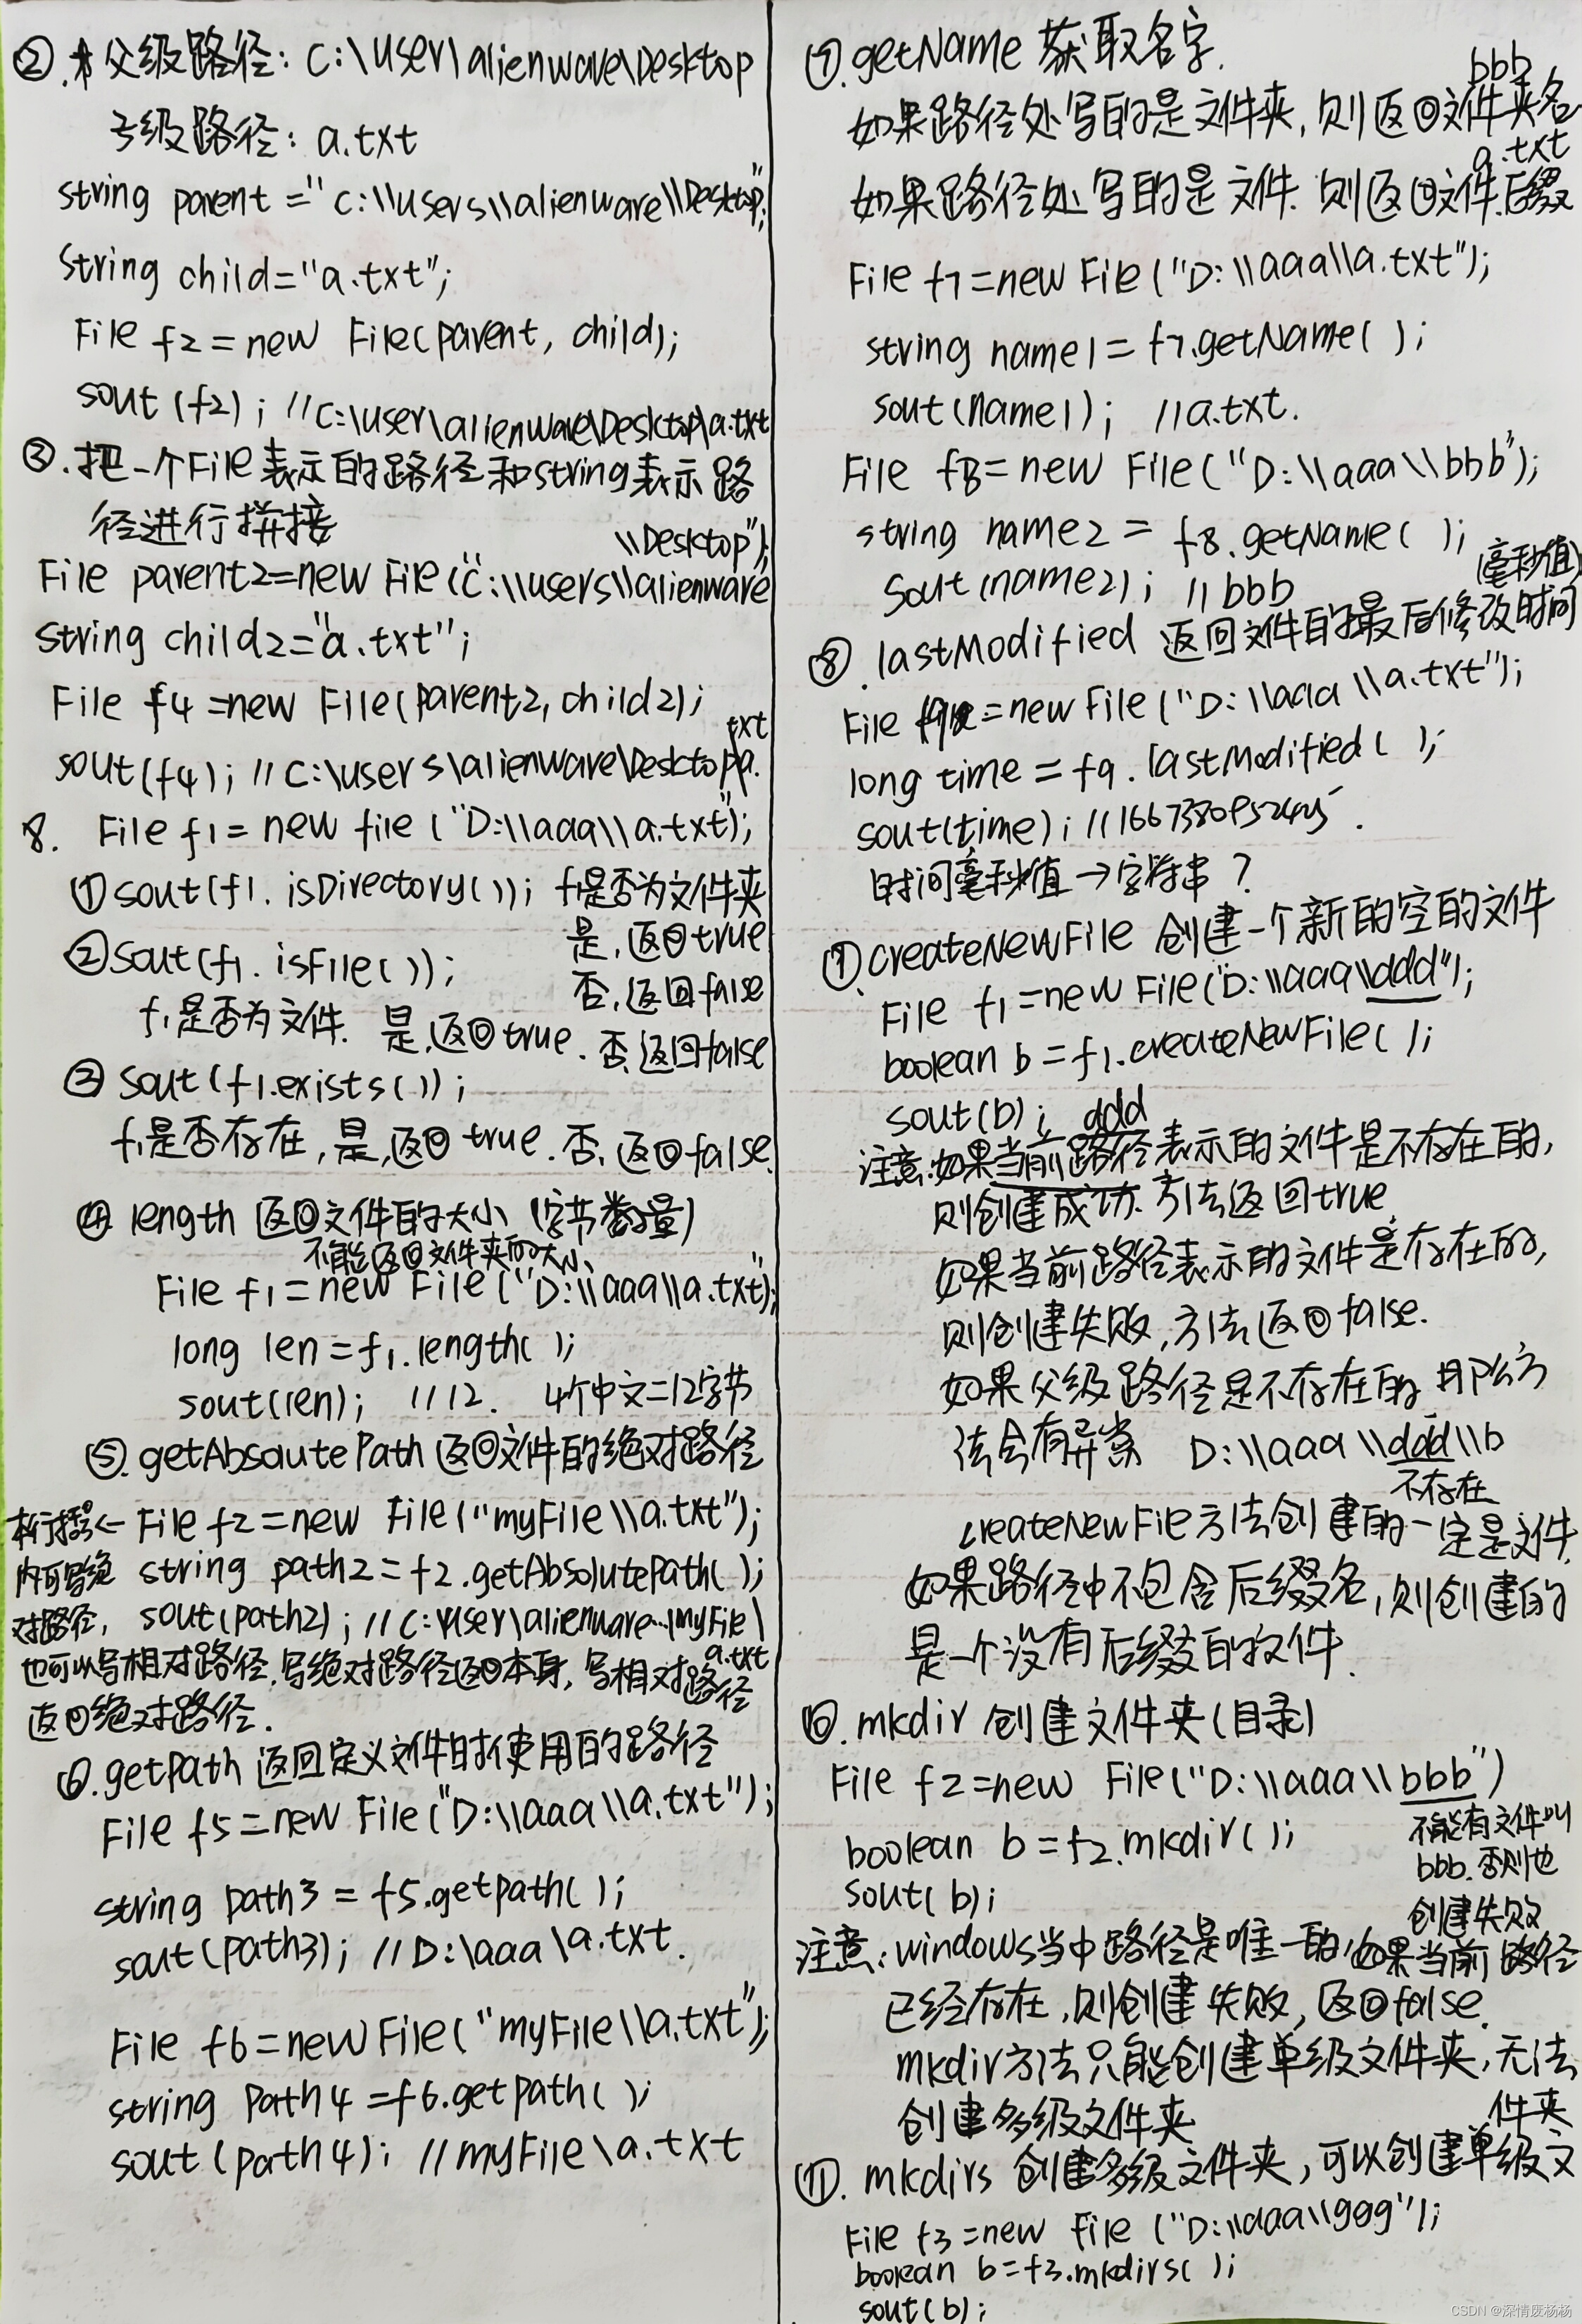 ②.父级路径: C:\user\alienwave\Desktop
子级路径: a.txt
string parent ="C:\\users\\alienware\\Desktop";
String child="a.txt";
File f2=new File(parent, child);
sout (f2); //C:\user\alienwave\Desktop\a.txt
③.把一个File表示的路径和string表示路
径进行拼接
\\Desktop");
File parent2=new File("C:\\users\\alienware
String child2="a.txt";
File f4=new File(parent2, child2);
txt
sout(f4); //C:\users\alienware\Desktop\a.
8. File f1= new file ("D:\\aaa\\a.txt");
①sout(f1. isDirectory()); f1是否为文件夹
是,返回true
②Sout(f1. isFile());
否,返回false
f1是否为文件. 是,返回true. 否,返回false
③ Sout(f1.exists());
f1是否存在,是,返回true.否,返回false.
④ length 返回文件的大小 (字节数量)
不能返回文件夹的大小
File f1=new File("D:\\aaa\\a.txt");
long len=f1.length( );
sout(len); //12. 4个中文=12字节
⑤.getAbsautePath 返回文件的绝对路径
本行括号← File f2=new File("myFile\\a.txt");
内可写绝 string path2=f2.getAbsolutePath( );
对路径, sout(path2); //C:\User\alienware...\myFile\
a.txt
也可以写相对路径.写绝对路径返回本身,写相对路径
返回绝对路径.
⑥.getPath 返回定义文件时使用的路径
File f5=new File("D:\\aaa\\a.txt");
string path3 = f5.getpath( );
sout(path3); //D:\aaa\a.txt.
File f6=new File("myFile\\a.txt");
string Path4=f6.getpath( );
sout (path4); //myFile\a.txt
⑦.getName 获取名字.
bbb
如果路径处写的是文件夹,则返回文件夹名
a.txt
如果路径处写的是文件. 则返回文件.后缀
File f7=new File ("D:\\aaa\\a.txt");
string name1= f7.getName( );
sout(name1); //a.txt.
File f8=new File("D:\\aaa\\bbb");
string name2 = f8.getName( );
Sout(name2); //bbb
(毫秒值)
⑧.lastModified 返回文件的最后修改时间
File f9=new File ("D:\\aaa\\a.txt");
long time = f9.lastModified( );
sout(time);
时间毫秒值→字符串?
⑨.createNewFile 创建一个新的空的文件
File f1=new File("D:\\aaa\\ddd");
boolean b=f1.createNewFile( );
sout(b); ddd
注意:如果当前路径表示的文件是不存在的,
则创建成功.方法返回true.
如果当前路径表示的文件是存在的,
则创建失败,方法返回false.
如果父级路径是不存在的 那么方
法会有异常 D:\\aaa\\ddd\\b
不存在
createNewFile方法创建的一定是文件,
如果路径中不包含后缀名,则创建的
是一个没有后缀的文件.
⑩.mkdir 创建文件夹(目录)
File f2=new File("D:\\aaa\\bbb")
不能有文件叫
boolean b=f2.mkdir();
bbb.否则也
sout(b);
创建失败
注意:windows当中路径是唯一的,如果当前路径
已经存在,则创建失败,返回false.
mkdir方法只能创建单级文件夹,无法
创建多级文件夹
件夹
⑪. mkdirs 创建多级文件夹,可以创建单级文
File f3=new File ("D:\\aaa\\ggg");
boolean b=f3.mkdirs( );
sout(b);
CSDN @深情废杨杨